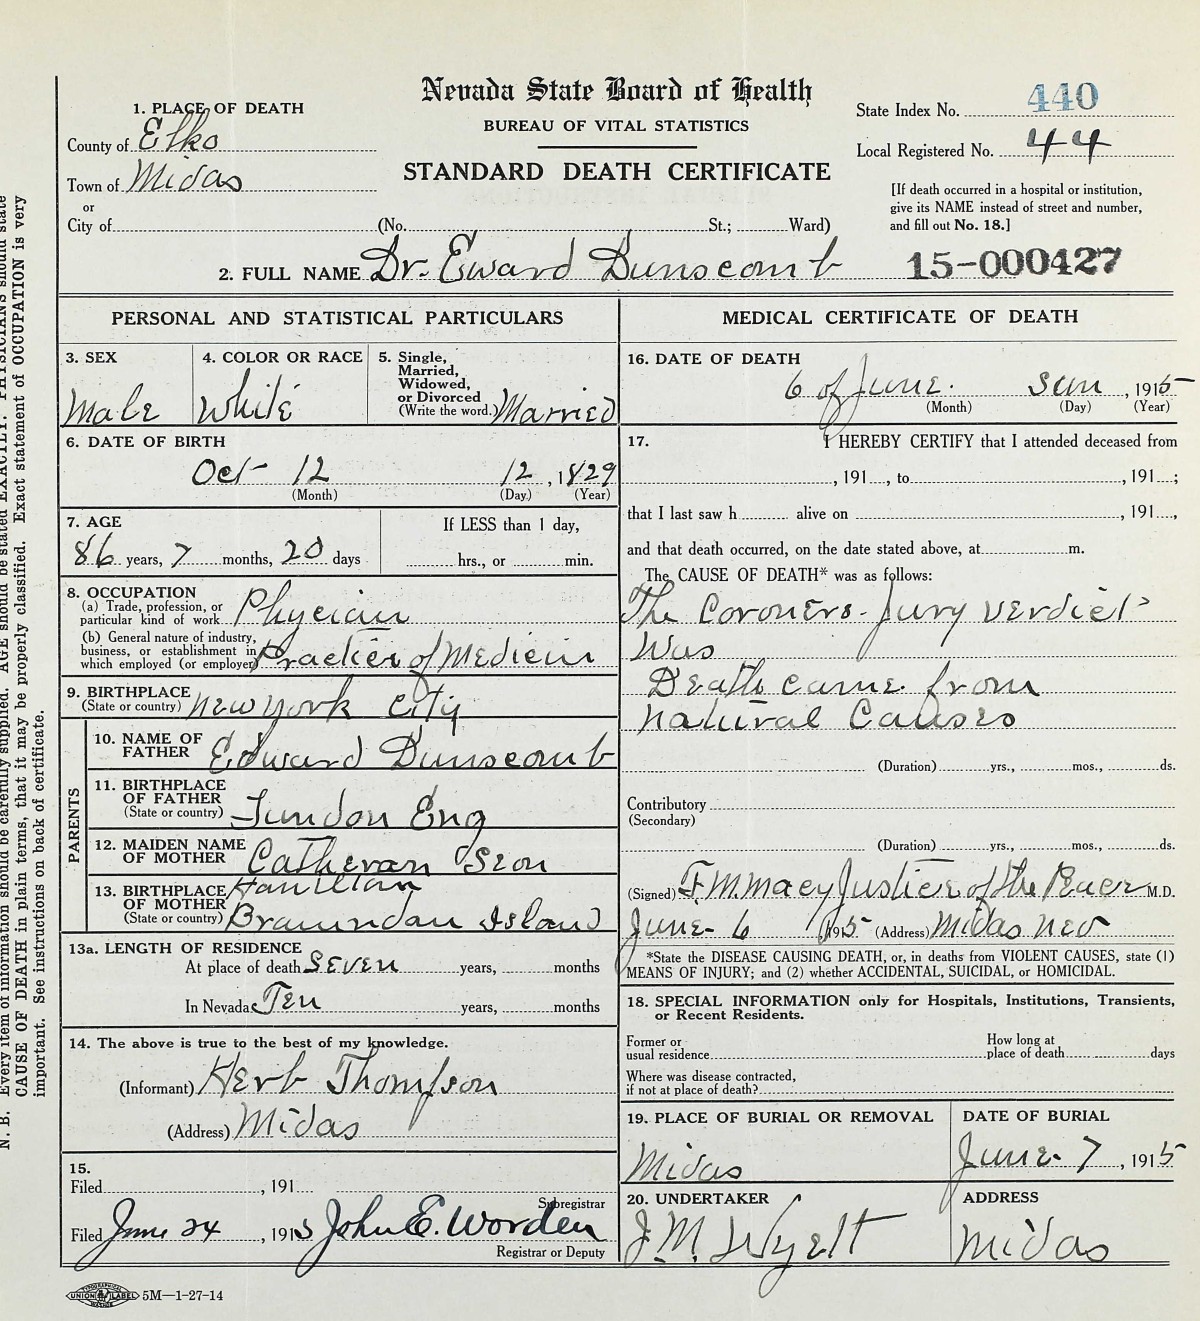 Nevada State Board of Health
BUREAU OF VITAL STATISTICS
STANDARD DEATH CERTIFICATE
1. PLACE OF DEATH
County of Elko
Town of Midas
or
City of (No. St.; Ward)
State Index No. 440
Local Registered No. 44
[If death occurred in a hospital or institution,
give its NAME instead of street and number,
and fill out No. 18.]
2. FULL NAME Dr. Edward Dunscomb
15-000427
PERSONAL AND STATISTICAL PARTICULARS
3. SEX
Male
4. COLOR OR RACE
White
5. Single,
Married,
Widowed,
or Divorced
(Write the word.) Married
6. DATE OF BIRTH
Oct 12 12, 1829
(Month) (Day.) (Year)
7. AGE
86 years, 7 months, 20 days
If LESS than 1 day,
hrs., or min.
8. OCCUPATION
(a) Trade, profession, or
particular kind of work Phycian
(b) General nature of industry,
business, or establishment in
which employed (or employer) Practice of Medicin
9. BIRTHPLACE
(State or country) New York City
PARENTS
10. NAME OF
FATHER Edward Dunscomb
11. BIRTHPLACE
OF FATHER
(State or country) Lundon Eng
12. MAIDEN NAME
OF MOTHER
13. BIRTHPLACE
OF MOTHER
(State or country) Island
13a. LENGTH OF RESIDENCE
At place of death Seven years, months
In Nevada Ten years, months
14. The above is true to the best of my knowledge.
(Informant) Herb Thompson
(Address) Midas
15.
Filed , 191
Subregistrar
Filed June 24, 1915 John E. Worden
Registrar or Deputy
MEDICAL CERTIFICATE OF DEATH
16. DATE OF DEATH
6 of June. Sun, 1915
(Month) (Day) (Year)
17. I HEREBY CERTIFY that I attended deceased from
, 191 , to , 191 ;
that I last saw h alive on , 191 ,
and that death occurred, on the date stated above, at m.
The CAUSE OF DEATH* was as follows:
The Coroners-Jury verdict
Was
Death came from
natural Causes
(Duration) yrs., mos., ds.
Contributory
(Secondary)
(Duration) yrs., mos., ds.
(Signed) F.M. Macy Justice of the Peace M.D.
June 6 1915 (Address) Midas Nev
*State the DISEASE CAUSING DEATH, or, in deaths from VIOLENT CAUSES, state (1)
MEANS OF INJURY; and (2) whether ACCIDENTAL, SUICIDAL, or HOMICIDAL.
18. SPECIAL INFORMATION only for Hospitals, Institutions, Transients,
or Recent Residents.
Former or
usual residence
How long at
place of death days
Where was disease contracted,
if not at place of death?
19. PLACE OF BURIAL OR REMOVAL
Midas
DATE OF BURIAL
June 7, 1915
20. UNDERTAKER
J.M. Wyett
ADDRESS
Midas
N. B. Every item of information should be carefully supplied. AGE should be stated EXACTLY. PHYSICIANS should state
CAUSE OF DEATH in plain terms, that it may be properly classified. Exact statement of OCCUPATION is very
important. See instructions on back of certificate.
UNION LABEL 5M—1-27-14